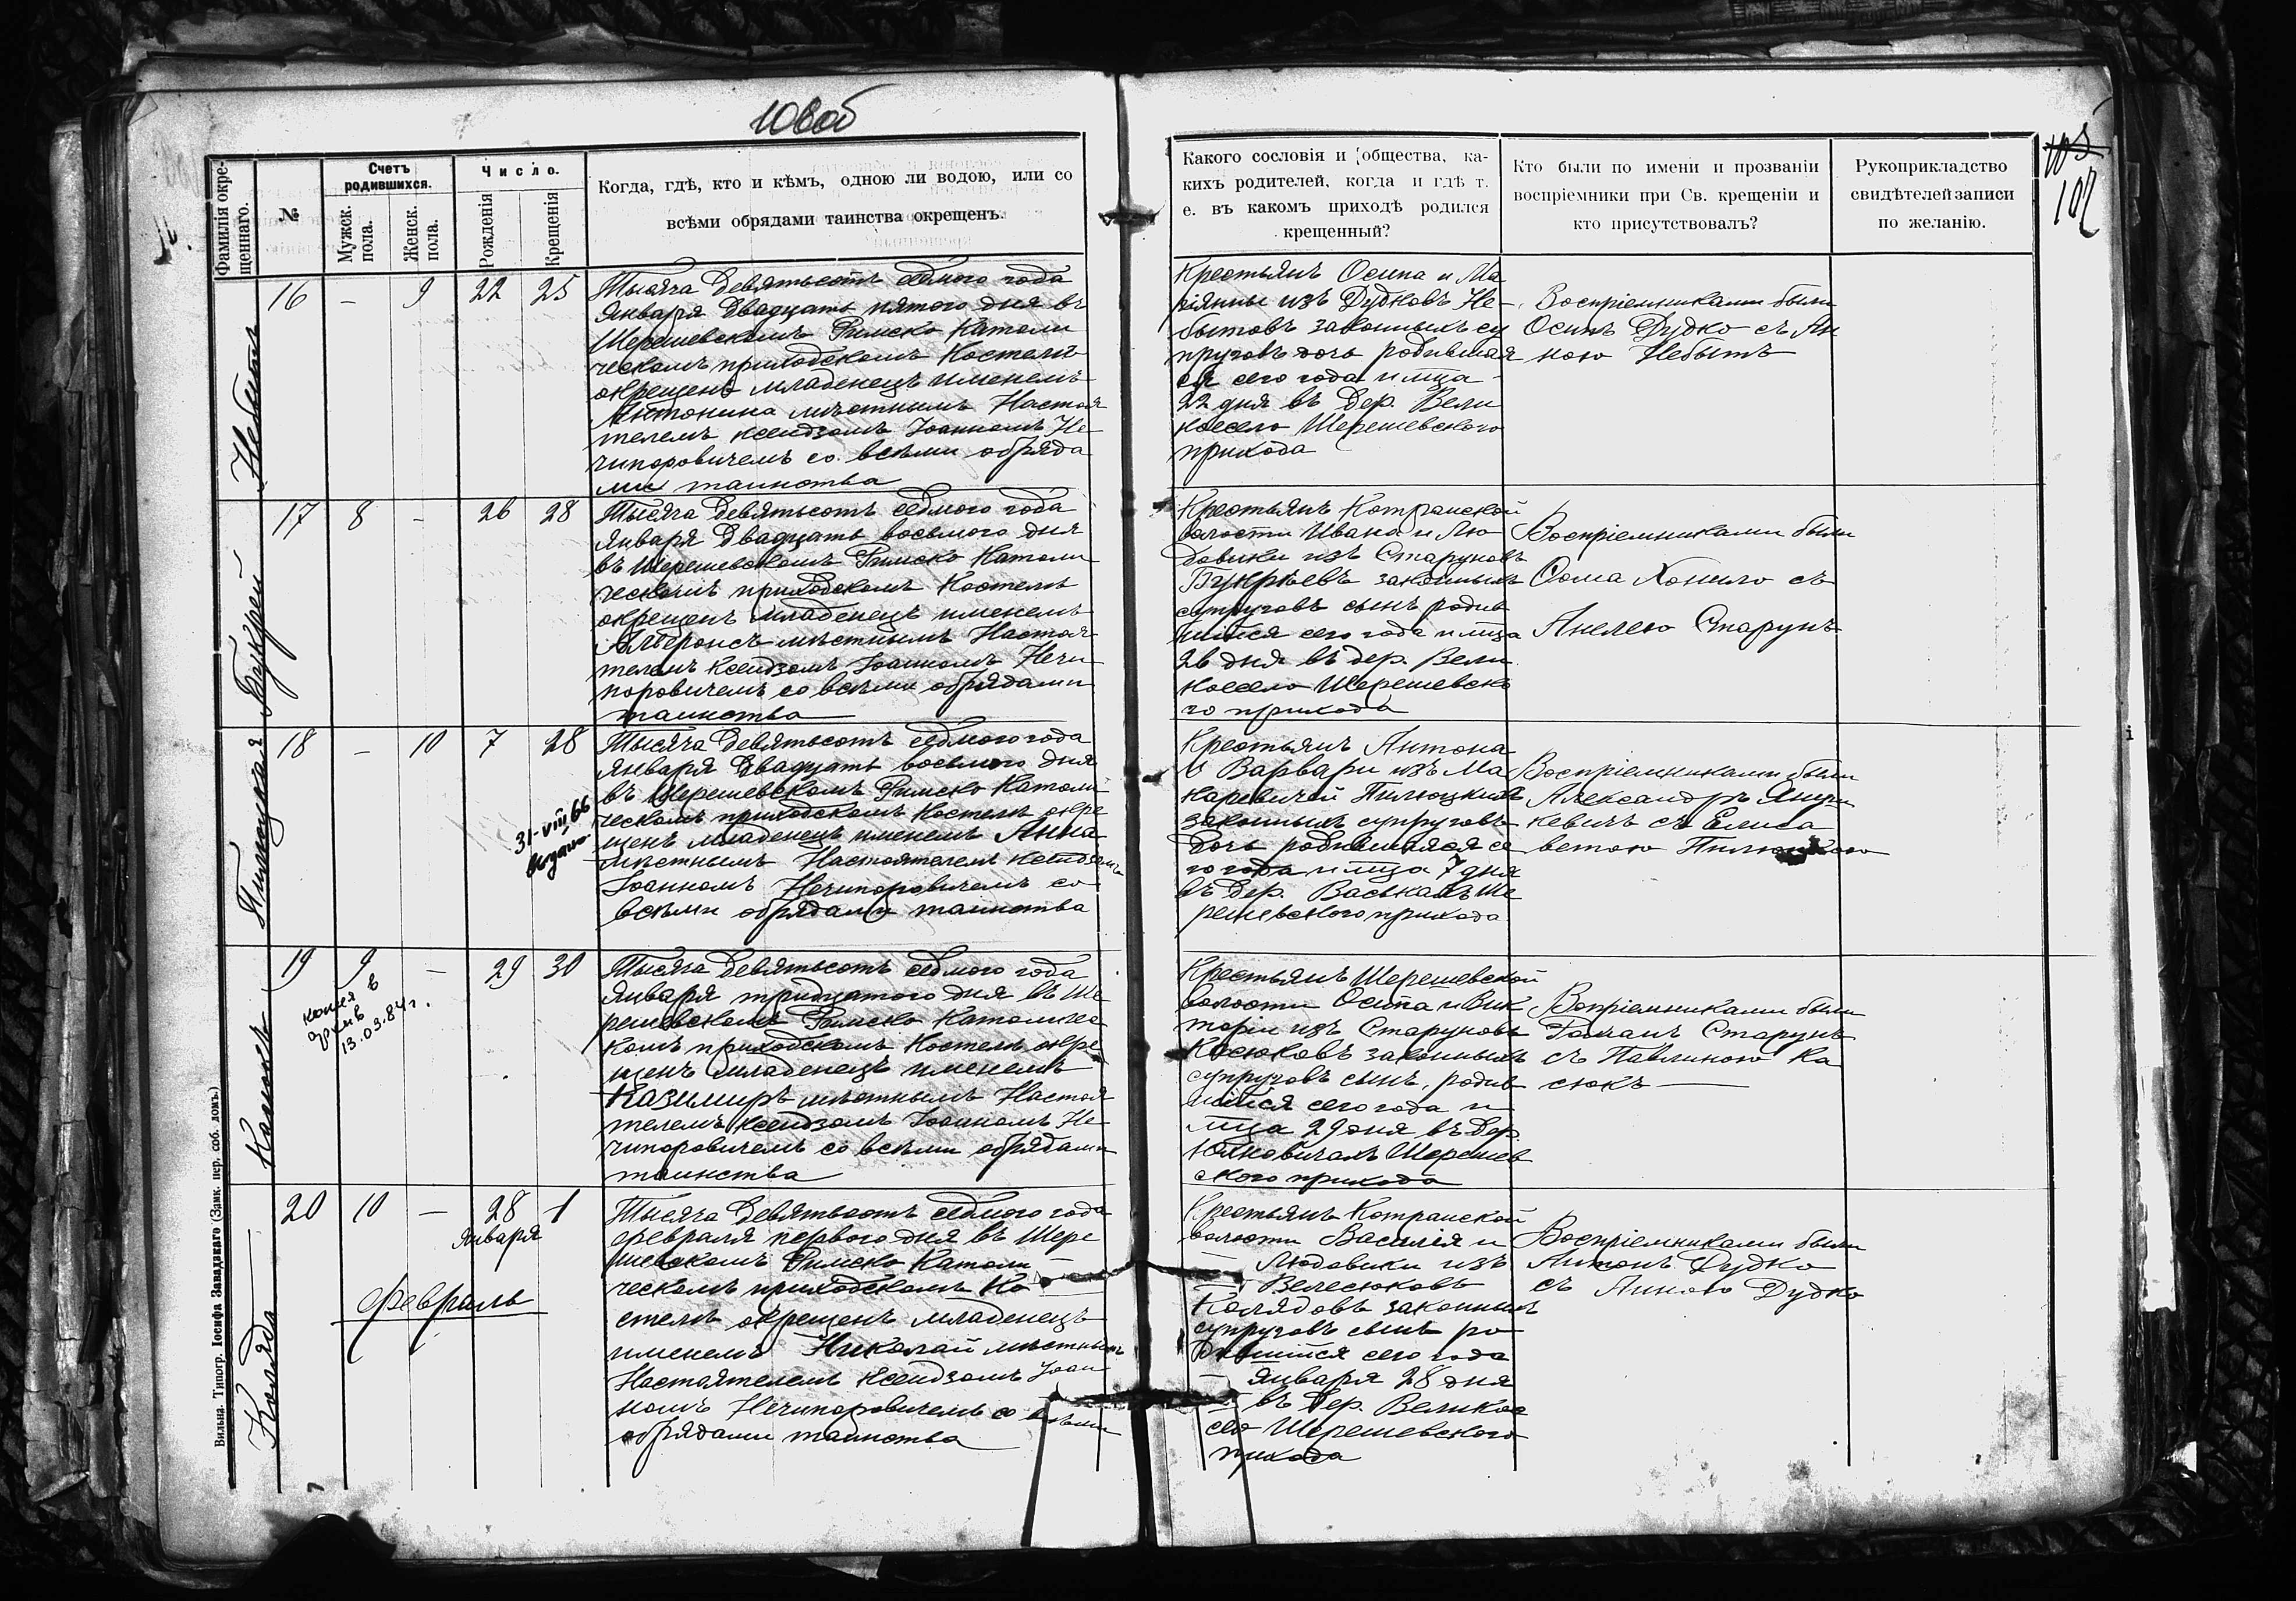 108об
105
107
Фамилія окре-
щеннаго.
№
Счетъ
родившихся.
Мужск.
пола.
Женск.
пола.
Число.
Рожденія
Крещенія
Когда, гдѣ, кто и кѣмъ, одною ли водою, или со
всѣми обрядами таинства окрещенъ.
Какого сословія и общества, ка-
кихъ родителей, когда и гдѣ т.
е. въ какомъ приходѣ родился
крещенный?
Кто были по имени и прозванію
воспріемники при Св. крещеніи и
кто присутствовалъ?
Рукоприкладство
свидѣтелей записи
по желанію.
Небытъ
16 - 9 22 25
Тысяча девятьсотъ седмого года
Января двадцать пятого дня въ
Шерешевскомъ Римско Католи
ческомъ приходскомъ Костелѣ
окрещенъ младенецъ именемъ
Антонина мѣстнымъ Настоя
телемъ ксендзомъ Іоанномъ Не
чипоровичемъ со всѣми обряда
ми таинства
Крестьянъ Осипа и Ма
ріянны изъ Дудковъ Не-
бытовъ законныхъ су
пруговъ дочь родившая
ся сего года и мца
22 дня въ дер. Вели
коесело Шерешевского
прихода
Воспріемниками были
Осипъ Дудко съ Ан
ною Небытъ
Букрей
17 8 - 26 28
Тысяча девятьсотъ седмого года
Января двадцать восьмого дня
въ Шерешевскомъ Римско Католи
ческомъ приходскомъ Костелѣ
окрещенъ младенецъ именемъ
Альфонсъ мѣстнымъ Настоя
телемъ Ксендзомъ Іоанномъ Нечи
поровичемъ со всѣми обрядами
таинства
Крестьянъ Котранской
волости Ивана и Лю
довики изъ Старуновъ
Букрѣевъ законныхъ
супруговъ сынъ родив
шійся сего года и мца
26 дня въ дер. Вели
коесело Шерешевско
го прихода
Воспріемниками были
Фома Хомило съ
Анелею Старунъ
Пилюцкая
18 - 10 7 28
31-VIII 66
выдано
Тысяча девятьсотъ седмого года
Января двадцать восьмого дня
въ Шерешевскомъ Римско Католи
ческомъ приходскомъ Костелѣ окре
щенъ младенецъ именемъ Анна
мѣстнымъ Настоятелемъ ксендзомъ
Іоанномъ Нечипоровичемъ со
всѣми обрядами таинства
Крестьянъ Антона
и Варвары изъ Ма
каревичей Пилюцкихъ
законныхъ супруговъ
дочь родившаяся се
го года и мца 7 дня
въ дер. Васькахъ Ше
решевского прихода
Воспріемниками были
Александръ
кевичъ съ Елиса
ветою Пилюцкою
Касюкъ
19 9 - 29 30
копия в
13.03.84г.
Тысяча девятьсотъ седмого года
Января тридцатого дня въ Ше
решевскомъ Римско Католичес
комъ приходскомъ Костелѣ окре
щенъ младенецъ именемъ
Казимиръ мѣстнымъ Настоя
телемъ ксендзомъ Іоанномъ Не
чипоровичемъ со всѣми обрядами
таинства
Крестьянъ Шерешевской
волости Осипа и Вик
торіи изъ Старуновъ
Касюковъ законныхъ
супруговъ сынъ, родив
шійся сего года и
мца 29 дня въ дер.
Юлковичахъ Шерешев
ского прихода
Вопріемниками были
Романъ Старунъ
съ Павлиною Ка
сюкъ
Коляда
20 10 - 28 1
Января
Февраль
Тысяча девятьсотъ седмого года
Февраля первого дня въ Шере
шевскомъ Римско Католи
ческомъ приходскомъ Ко
стелѣ окрещенъ младенецъ
именемъ Николай мѣстнымъ
Настоятелемъ ксендзомъ Іоан
номъ Нечипоровичемъ со всѣми
обрядами таинства
Крестьянъ Котранской
волости Василія и
Людовики изъ
Велесюковъ
Колядовъ законныхъ
супруговъ сынъ ро
дившійся сего года
Января 28 дня
въ дер. Великое
село Шерешевского
прихода
Воспріемниками были
Антонъ Дудко
съ Анною Дудко
Вильна. Типогр. Іосифа Завадзкаго (Замк. пер. соб. домъ.)